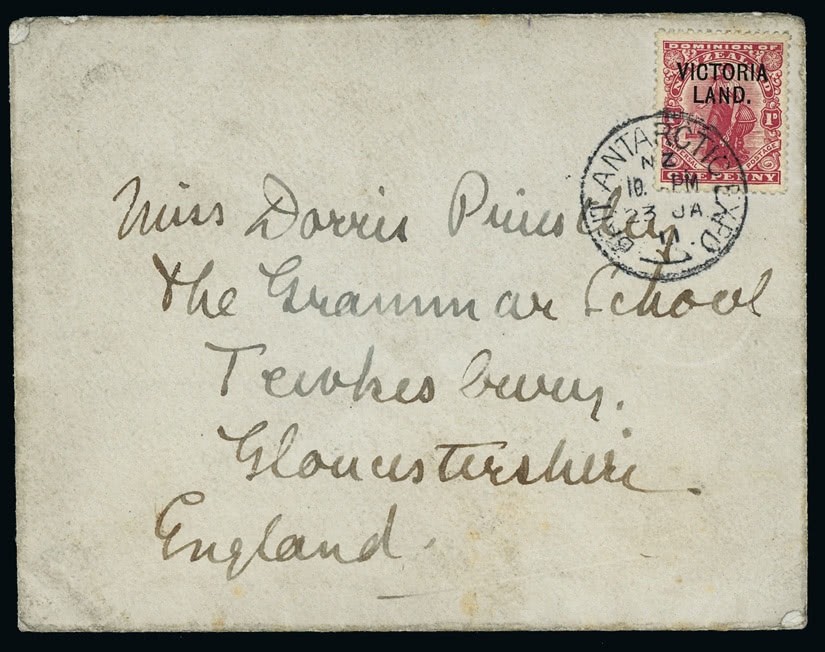 DOMINION OF
NEW ZEALAND
VICTORIA
LAND.
1D
UNIVERSAL POSTAGE
ONE PENNY
BRIT. ANTARCTIC EXPD.
NZ
10. PM
23 JA
11
Miss Dorris Priestley
The Grammar School
Tewkesbury.
Gloucestershire.
England.